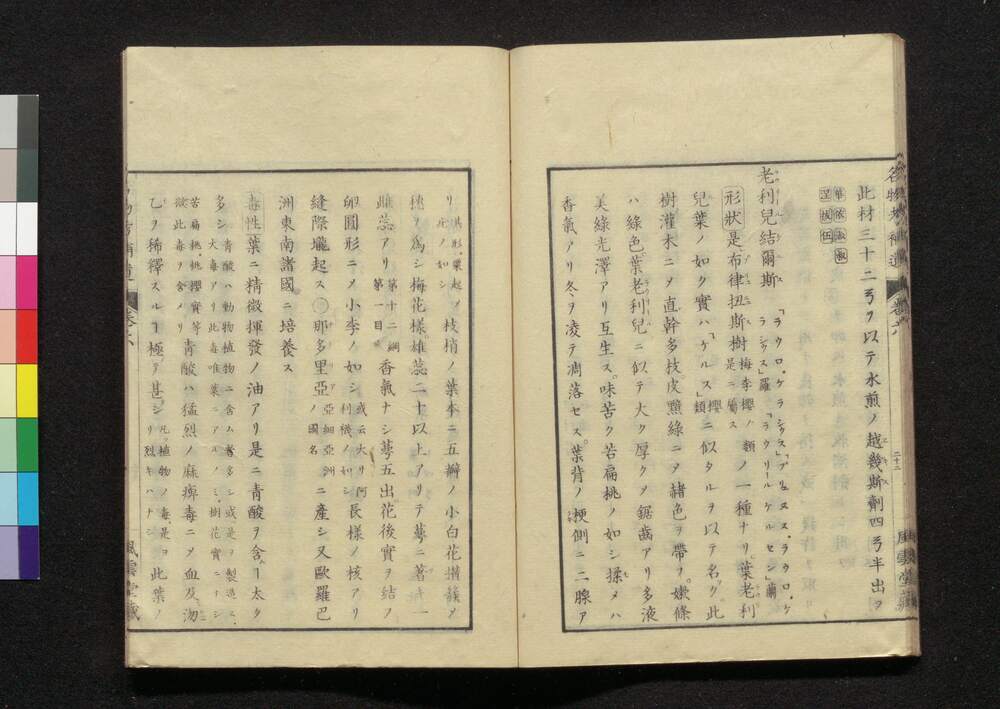 名物考補遺 卷六 二十二 風雲堂藏
此材三十二ヲ以テ水煎ノ越幾斯劑四半出ヲ
華依氏
涅拔伍
老利兒結爾斯 「ラウロ、ケラシウス」「プリュニュス、ラウロ、ケラシウス」羅 「ラウリール ケルセン」蘭
形狀 是布律扭斯樹 梅李櫻ノ類是ニ屬ス ノ一種ナリ。葉老利
兒葉ノ如ク實ハ「ケルス」櫻類ニ似タルヲ以テ名ク此
樹灌木ニメ直幹多枝皮黯綠ニメ赭色ヲ帶ノ嫩條
ハ綠色。葉老利兒ニ似テ大ク厚クメ鋸齒アリ多液
美綠光澤アリ互生ス。味苦ク苦扁桃ノ如シ揉メハ
香氣アリ冬ヲ凌テ凋落セス。葉背ノ梗側ニ二腺ア
リ 其形粟起メ疣ノ如シ 枝梢ノ葉本ニ五瓣ノ小白花攅簇メ
穗ヲ爲シ梅花樣。雄蕊二十以上アリテ萼ニ著ク一
雌蕊アリ 第十二綱第一目 香氣ナシ萼五出花後實ヲ結ノ
卵圓形ニメ小李ノ如シ 或云大リ阿利襪ノ如シ 長樣ノ核アリ
縫際壠起ス○那多里亞 亞細亞洲ノ國名 ニ產シ又歐羅巴
洲東南諸國ニ培養ス
毒性 葉ニ精微揮發ノ油アリ是ニ青酸ヲ含ー太タ
多シ 青酸ハ動物植物ニ含ム者多シ或ハ是ヲ製造シ
大毒アリ此毒唯葉ニアルノミ樹花實ニナシ
苦扁桃、桃、櫻實等此毒ヲ含メリ 青酸ハ猛烈ノ麻痺毒ニメ血及
乙ヲ稀釋スルー極テ甚シ 凡ソ植物ノ毒是ヨリ烈キハナシ 此葉ノ
卷六 風雲堂藏